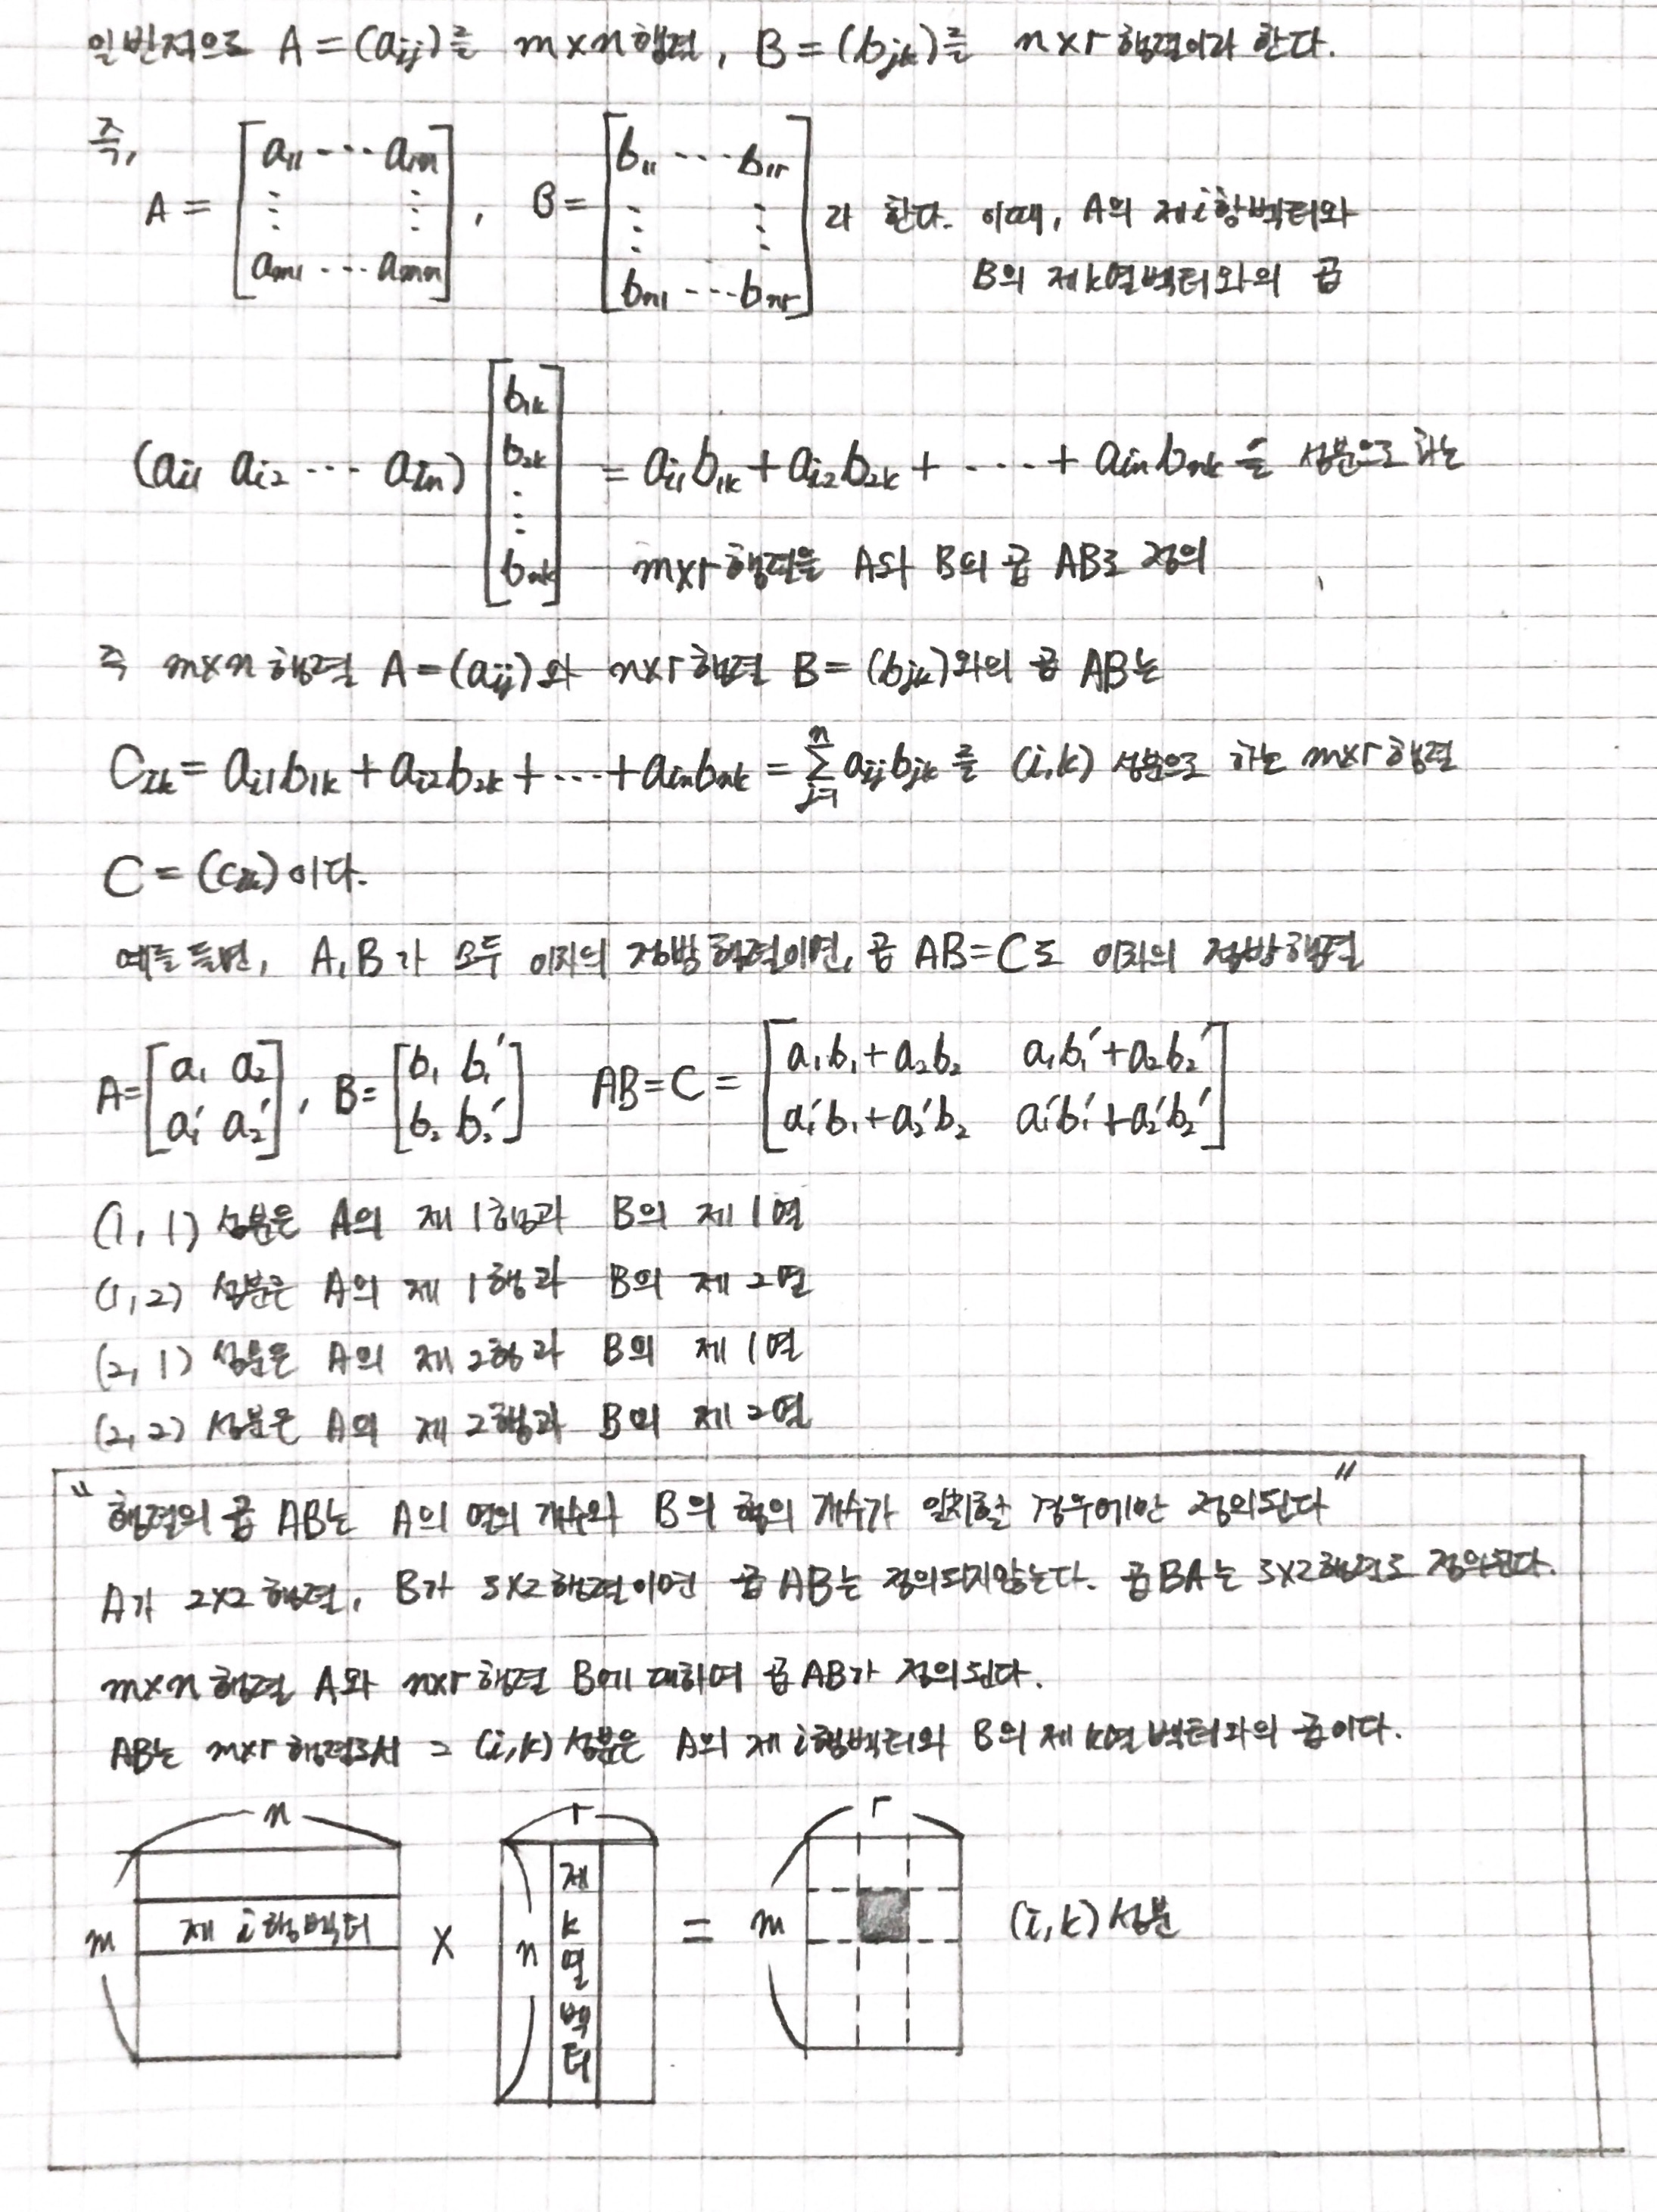 일반적으로 A = (aij)를 m×n행렬, B = (bjk)를 n×r행렬이라 한다.
즉,
A = [a11 ··· a1n ⋮ ⋮ am1 ··· amn], B = [b11 ··· b1r ⋮ ⋮ bn1 ··· bnr] 라 한다. 이때, A의 제i항벡터와
B의 제k열벡터와의 곱
(ai1 ai2 ··· ain) [b1k b2k ⋮ bnk] = ai1b1k + ai2b2k + ···· + ainbnk 를 성분으로 하는
m×r행렬을 A와 B의 곱 AB로 정의
즉 m×n행렬 A = (aij)와 n×r행렬 B = (bjk)와의 곱 AB는
Cik = ai1b1k + ai2b2k + ··· + ainbnk = Σ(j=1, n) aijbjk 를 (i,k) 성분으로 하는 m×r행렬
C = (cik)이다.
예를 들면, A,B가 모두 이차의 정방행렬이면, 곱 AB=C도 이차의 정방행렬
A=[a1 a2 a1′ a2′], B=[b1 b1′ b2 b2′] AB=C= [a1b1+a2b2 a1b1′+a2b2′ a1′b1+a2′b2 a1′b1′+a2′b2′]
(1,1) 성분은 A의 제 1행과 B의 제 1열
(1,2) 성분은 A의 제 1행과 B의 제 2열
(2,1) 성분은 A의 제 2행과 B의 제 1열
(2,2) 성분은 A의 제 2행과 B의 제 2열
"행렬의 곱 AB는 A의 열의 개수와 B의 행의 개수가 일치할 경우에만 정의된다"
A가 2×2행렬, B가 3×2행렬이면 곱 AB는 정의되지않는다. 곱BA는 3×2행렬로 정의된다.
m×n행렬 A와 n×r행렬 B에 대하여 곱AB가 정의된다.
AB는 m×r행렬로서 그 (i,k) 성분은 A의 제 i행벡터와 B의 제 k열벡터와의 곱이다.
n r r
m 제 i행벡터 × n 제k열벡터 = m (i,k)성분